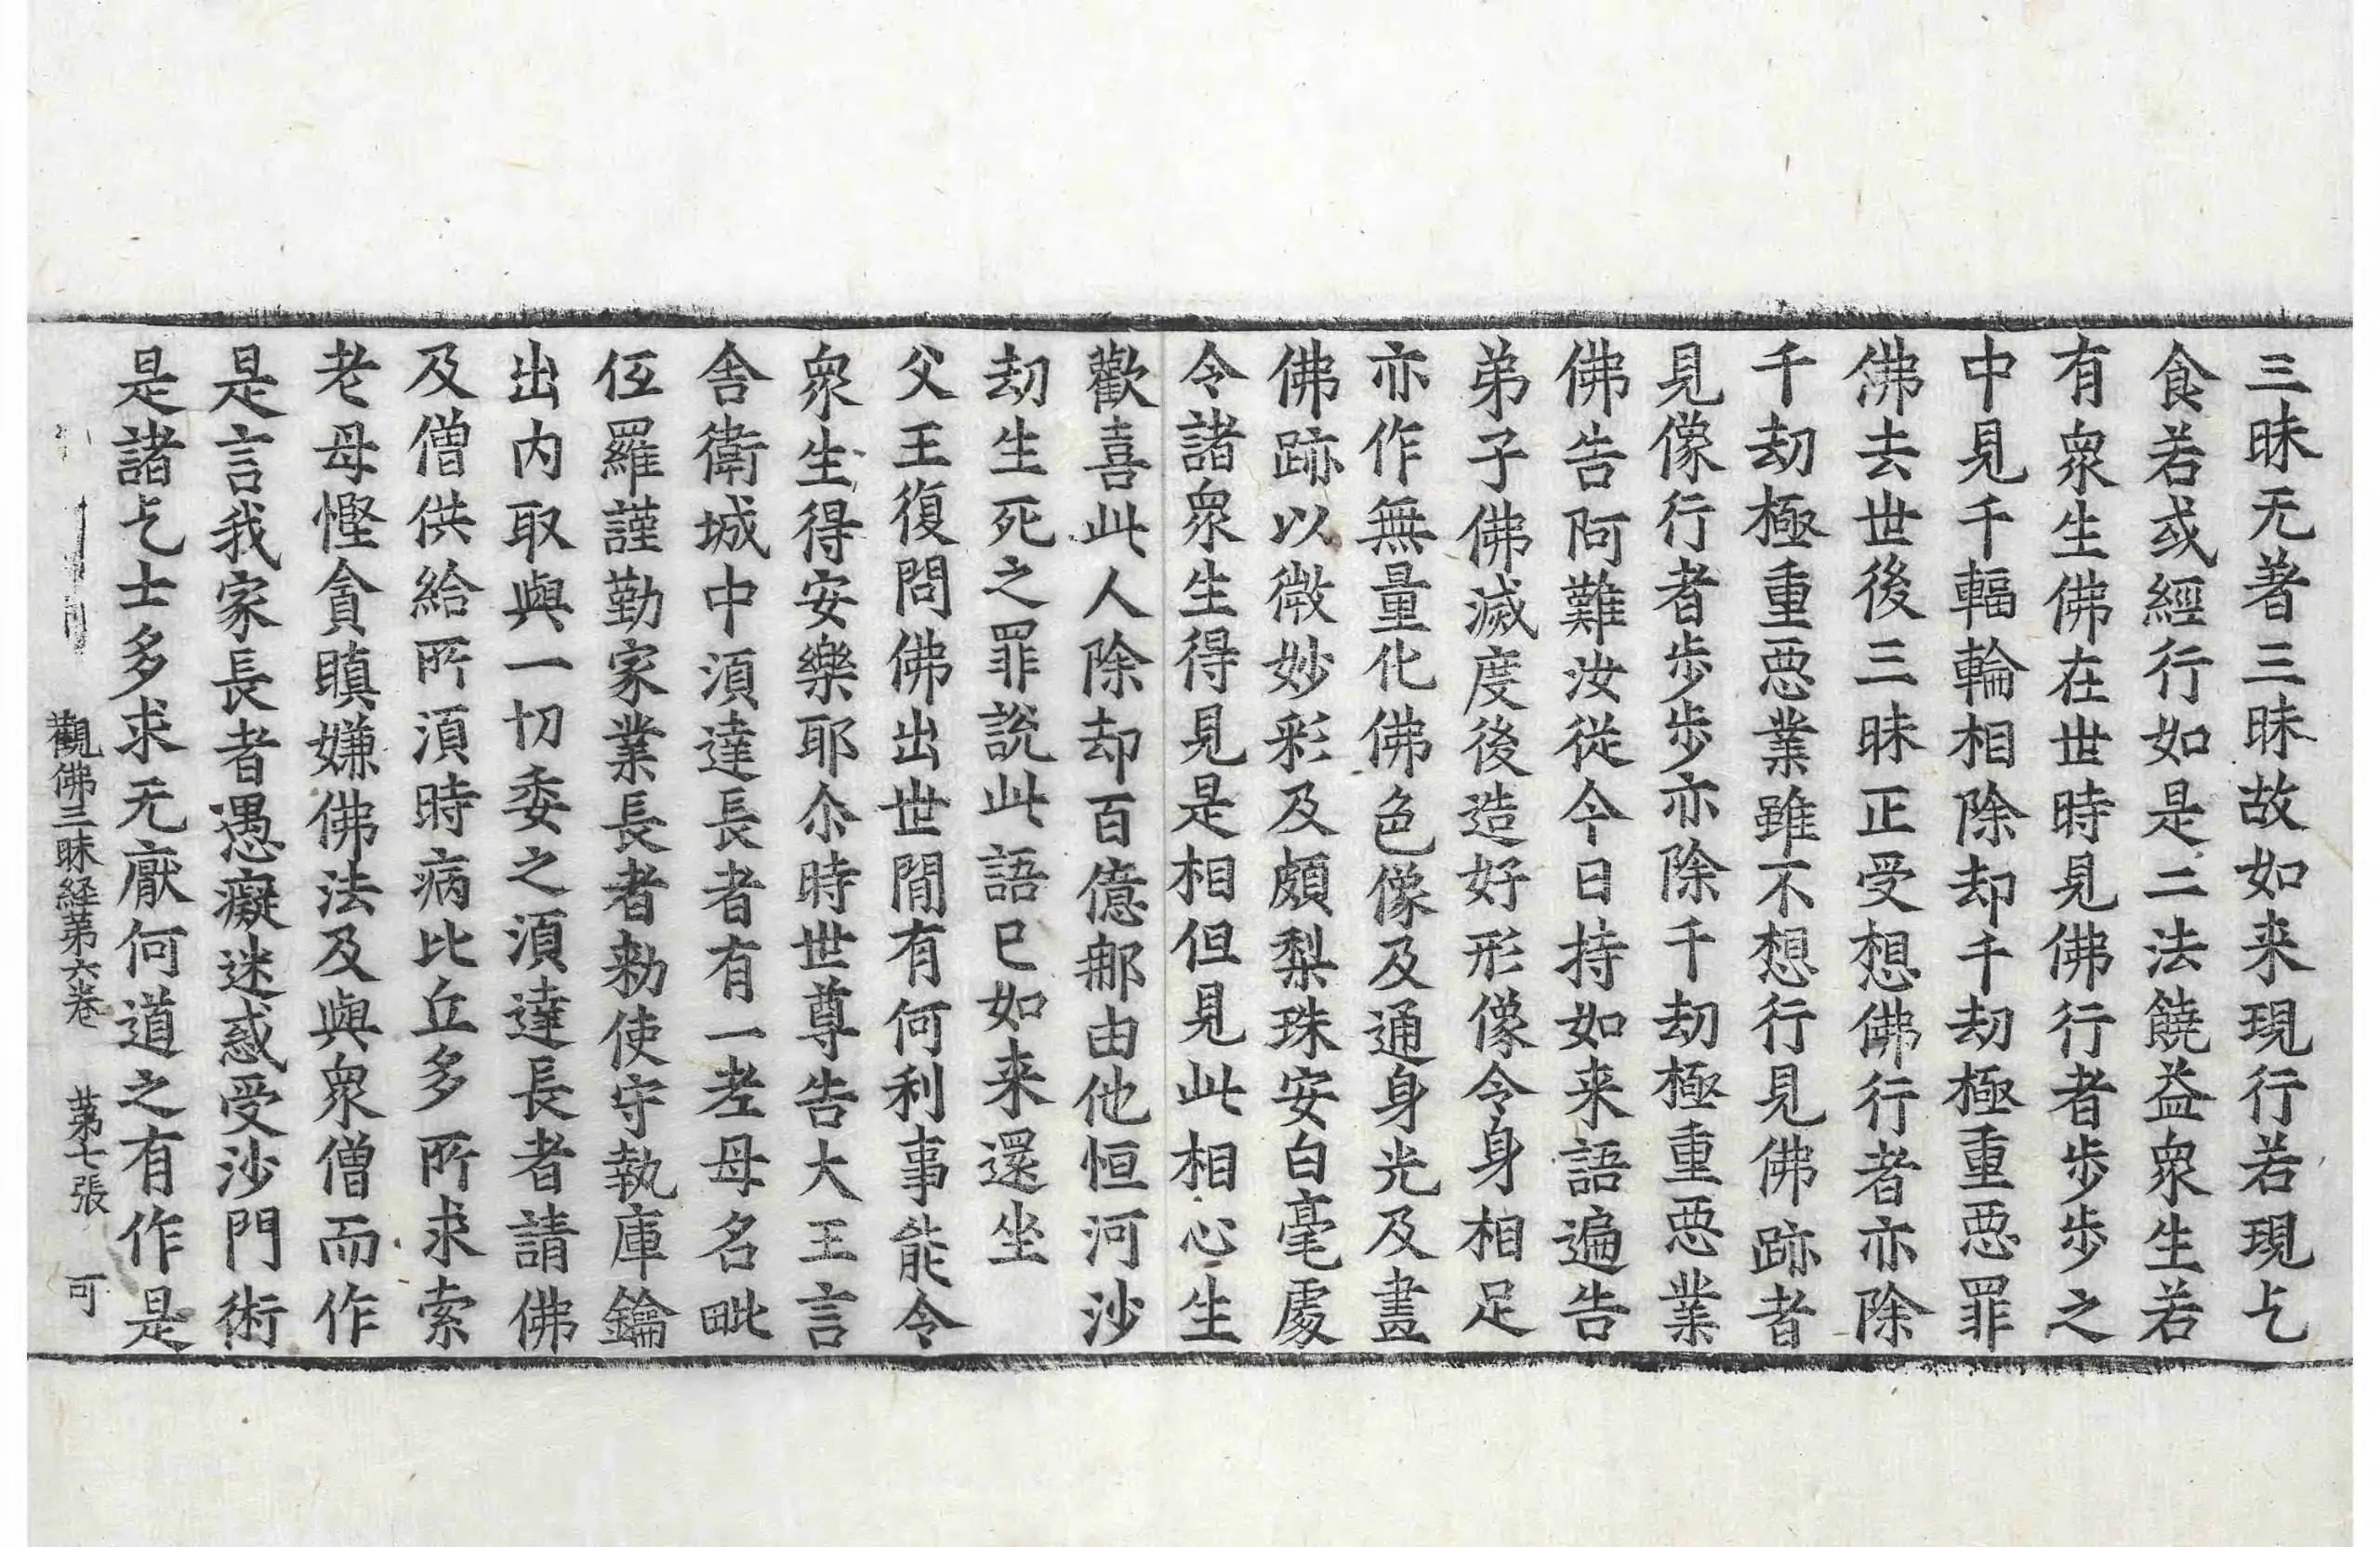 三昧无著三昧故如来現行若現乞
食若或經行如是二法饒益衆生若
有衆生佛在世時見佛行者步步之
中見千輻輪相除却千劫極重惡罪
佛去世後三昧正受想佛行者亦除
千劫極重惡業雖不想行見佛跡者
見像行者步步亦除千劫極重惡業
佛告阿難汝從今日持如来語遍告
弟子佛滅度後造好形像令身相足
亦作無量化佛色像及通身光及畫
佛跡以微妙彩及頗梨珠安白毫處
令諸衆生得見是相但見此相心生
歡喜此人除却百億那由他恒河沙
劫生死之罪說此語已如来還坐
父王復問佛出世閒有何利事能令
衆生得安樂耶尒時世尊告大王言
舍衛城中湏達長者有一老母名毗
伍羅謹勤家業長者勑使守執庫鑰
出内取與一切委之湏達長者請佛
及僧供給所湏時病比丘多所求索
老母慳貪瞋嫌佛法及與衆僧而作
是言我家長者愚癡迷惑受沙門術
是諸乞士多求无厭何道之有作是
觀佛三昧経第六卷 第七張 可